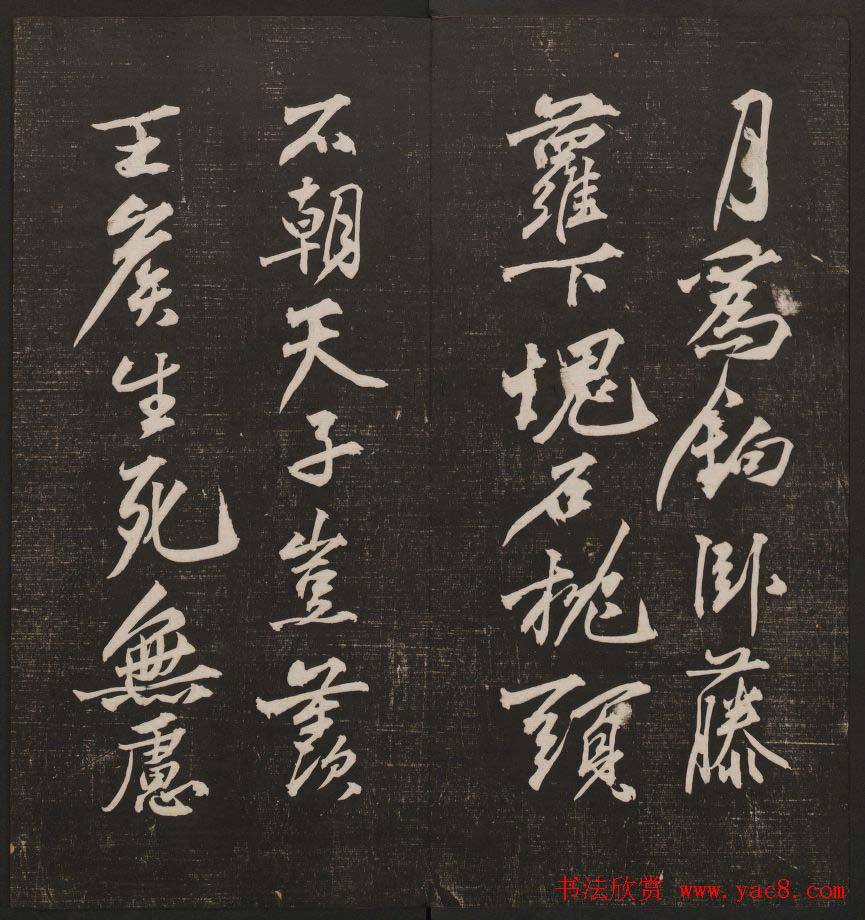 月為鈎卧藤
蘿下塊石枕頭
不朝天子豈羨
王矦生死無慮
书法欣赏 www.yac8.com